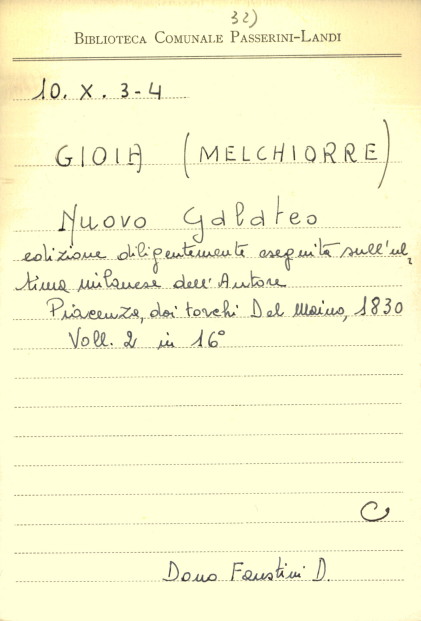 32)
BIBLIOTECA COMUNALE PASSERINI-LANDI
10. X. 3-4
GIOIA (MELCHIORRE)
Nuovo Galateo
edizione diligentemente eseguita sull'ul=
tima milanese dell'Autore
Piacenza, dai torchi Del Maino, 1830
Voll. 2 in 16°
C
Dono Faustini D.